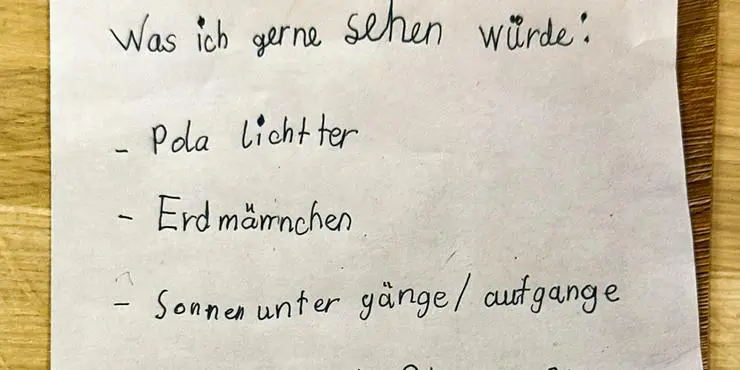 Was ich gerne sehen würde:
- Pola lichtter
- Erdmännchen
- Sonnenunter gänge/ aufgange